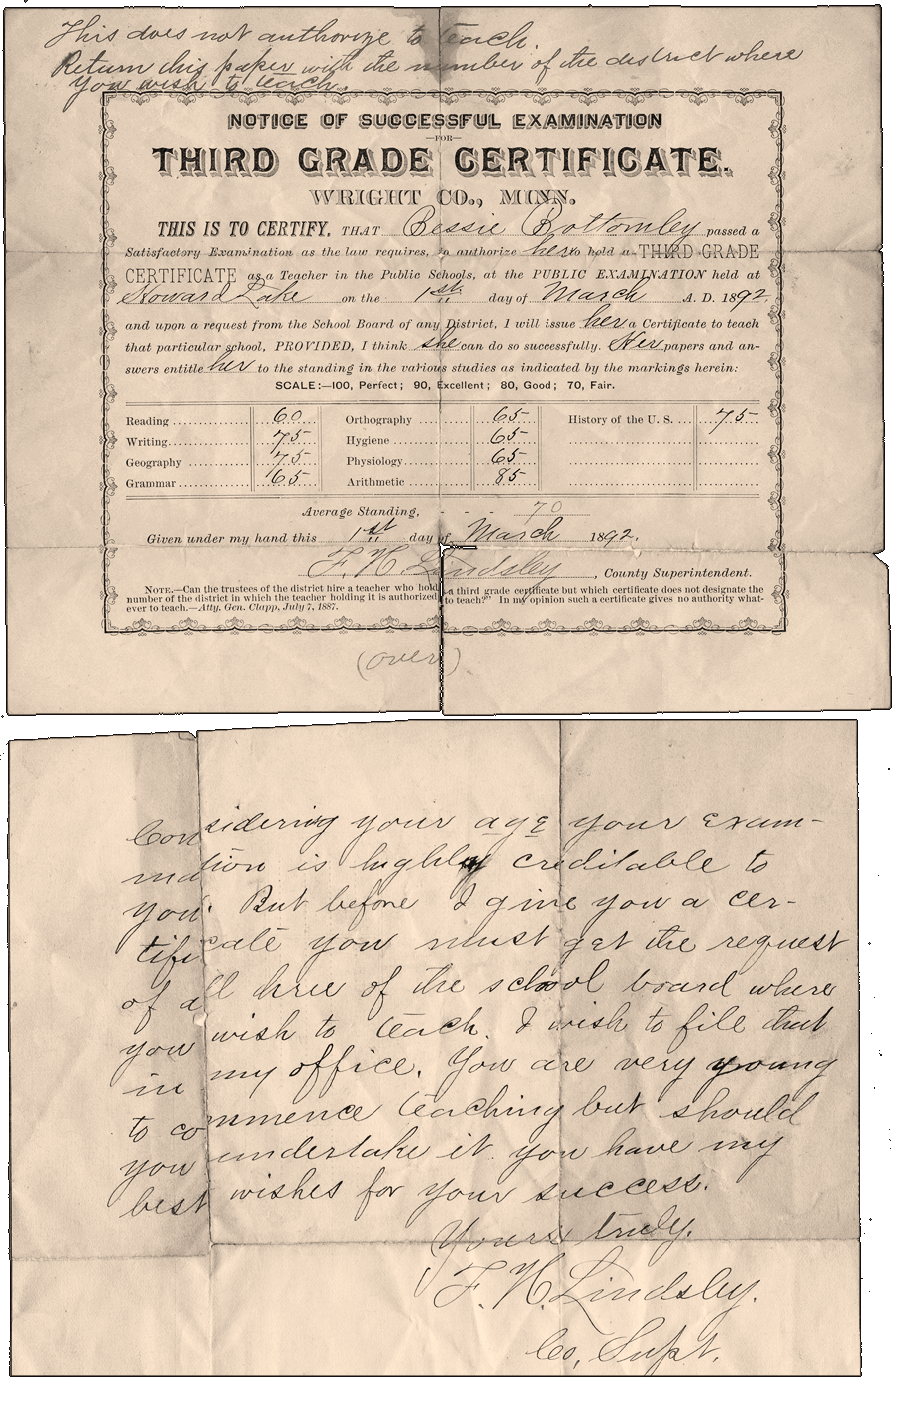 This does not authorize to teach.
Return this paper with the number of the district where
you wish to teach.
NOTICE OF SUCCESSFUL EXAMINATION
—FOR—
THIRD GRADE CERTIFICATE.
WRIGHT CO., MINN.
THIS IS TO CERTIFY, THAT Bessie Bottomley passed a
Satisfactory Examination as the law requires, to authorize her to hold a THIRD GRADE
CERTIFICATE as a Teacher in the Public Schools, at the PUBLIC EXAMINATION held at
Howard Lake on the 1st day of March A. D. 1892.
and upon a request from the School Board of any District, I will issue her a Certificate to teach
that particular school, PROVIDED, I think she can do so successfully. Her papers and an-
swers entitle her to the standing in the various studies as indicated by the markings herein:
SCALE:—100, Perfect; 90, Excellent; 80, Good; 70, Fair.
Reading 60 Orthography 65 History of the U. S. 75
Writing 75 Hygiene 65
Geography 75 Physiology 65
Grammar 65 Arithmetic 85
Average Standing, - - - 70
Given under my hand this 1st day of March 1892.
F. H. Lindsley, County Superintendent.
NOTE.—Can the trustees of the district hire a teacher who hold a third grade certificate but which certificate does not designate the
number of the district in which the teacher holding it is authorized to teach?" In my opinion such a certificate gives no authority what-
ever to teach.—Atty. Gen. Clapp, July 7, 1887.
(over)
Considering your age your exam-
ination is highly creditable to
you. But before I give you a cer-
tificate you must get the request
of all three of the school board where
you wish to teach. I wish to file that
in my office. You are very young
to commence teaching but should
you undertake it you have my
best wishes for your success.
Yours truly.
F. H. Lindsley.
Co, Supt.